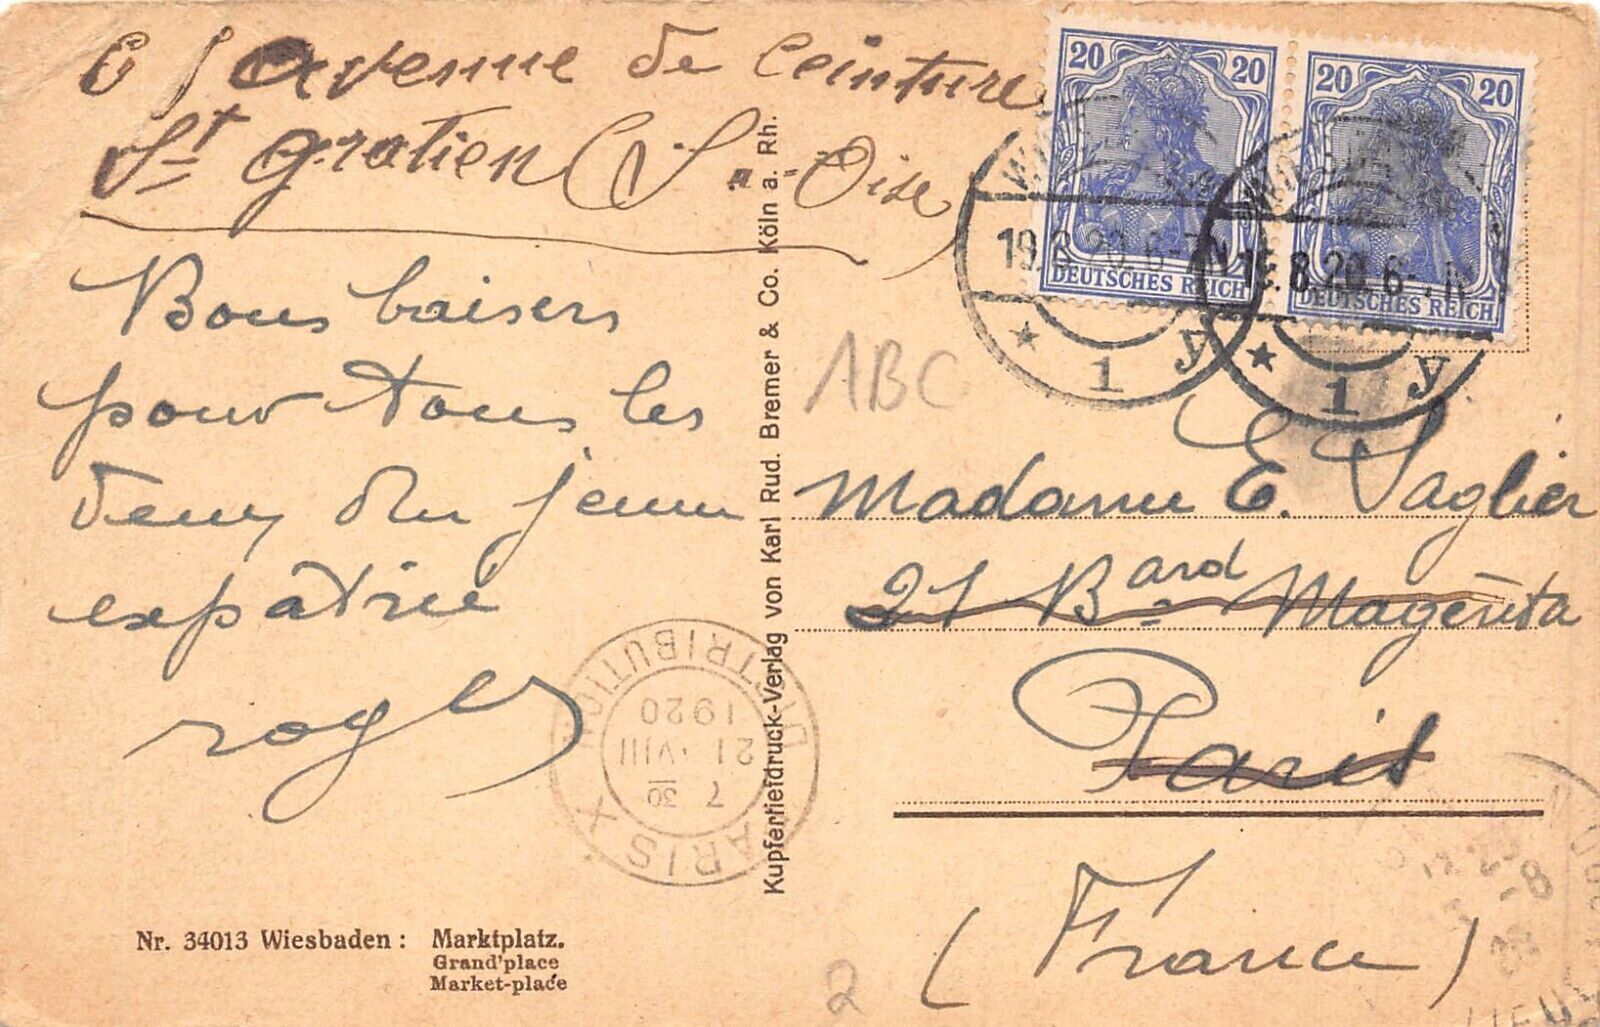 avenue de Ceinture
St gratien (S.-Oise
Bons baisers
pour tous les
deux du jeune
expatrié
roger
Kupfertiefdruck-Verlag von Karl Rud. Bremer & Co. Köln a. Rh.
Nr. 34013 Wiesbaden: Marktplatz.
Grand'place
Market-place
PARIS X DISTRIBUTION
7 30
21 VIII
1920
20 20
DEUTSCHES REICH
20 20
DEUTSCHES REICH
19.8.20. 6-7N
* 1 y
19.8.20. 6-7N
* 1 y
ABC
Madame E. Saglier
21 Bard Magenta
Paris
(France)
2